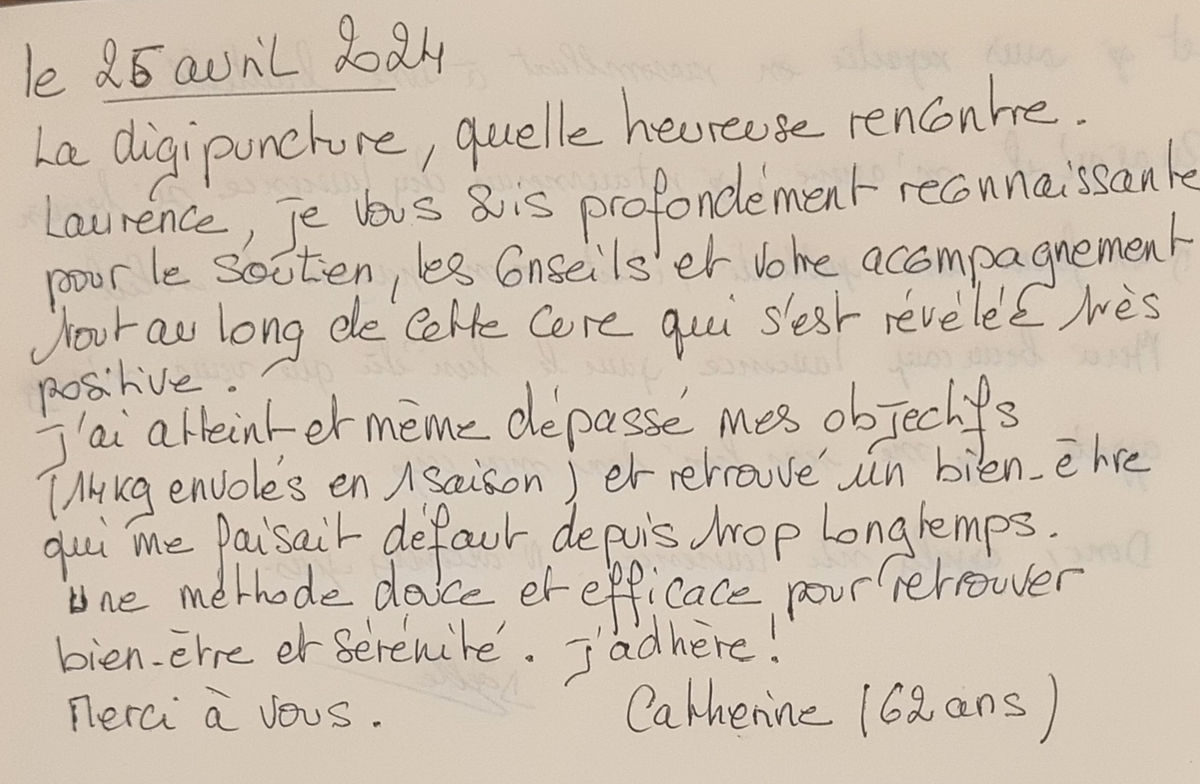 le 25 avril 2024
La digipuncture, quelle heureuse rencontre.
Laurence, je vous suis profondément reconnaissante
pour le soutien, les conseils et votre acompagnement
tout au long de cette cure qui s'est révélée très
positive.
j'ai atteint et même dépassé mes objectifs
(14kg envolés en 1 saison) et retrouvé un bien-être
qui me faisait défaut depuis trop longtemps.
une méthode douce et efficace pour retrouver
bien-être et sérénité. j'adhère!
Merci à vous. Catherine (62 ans)